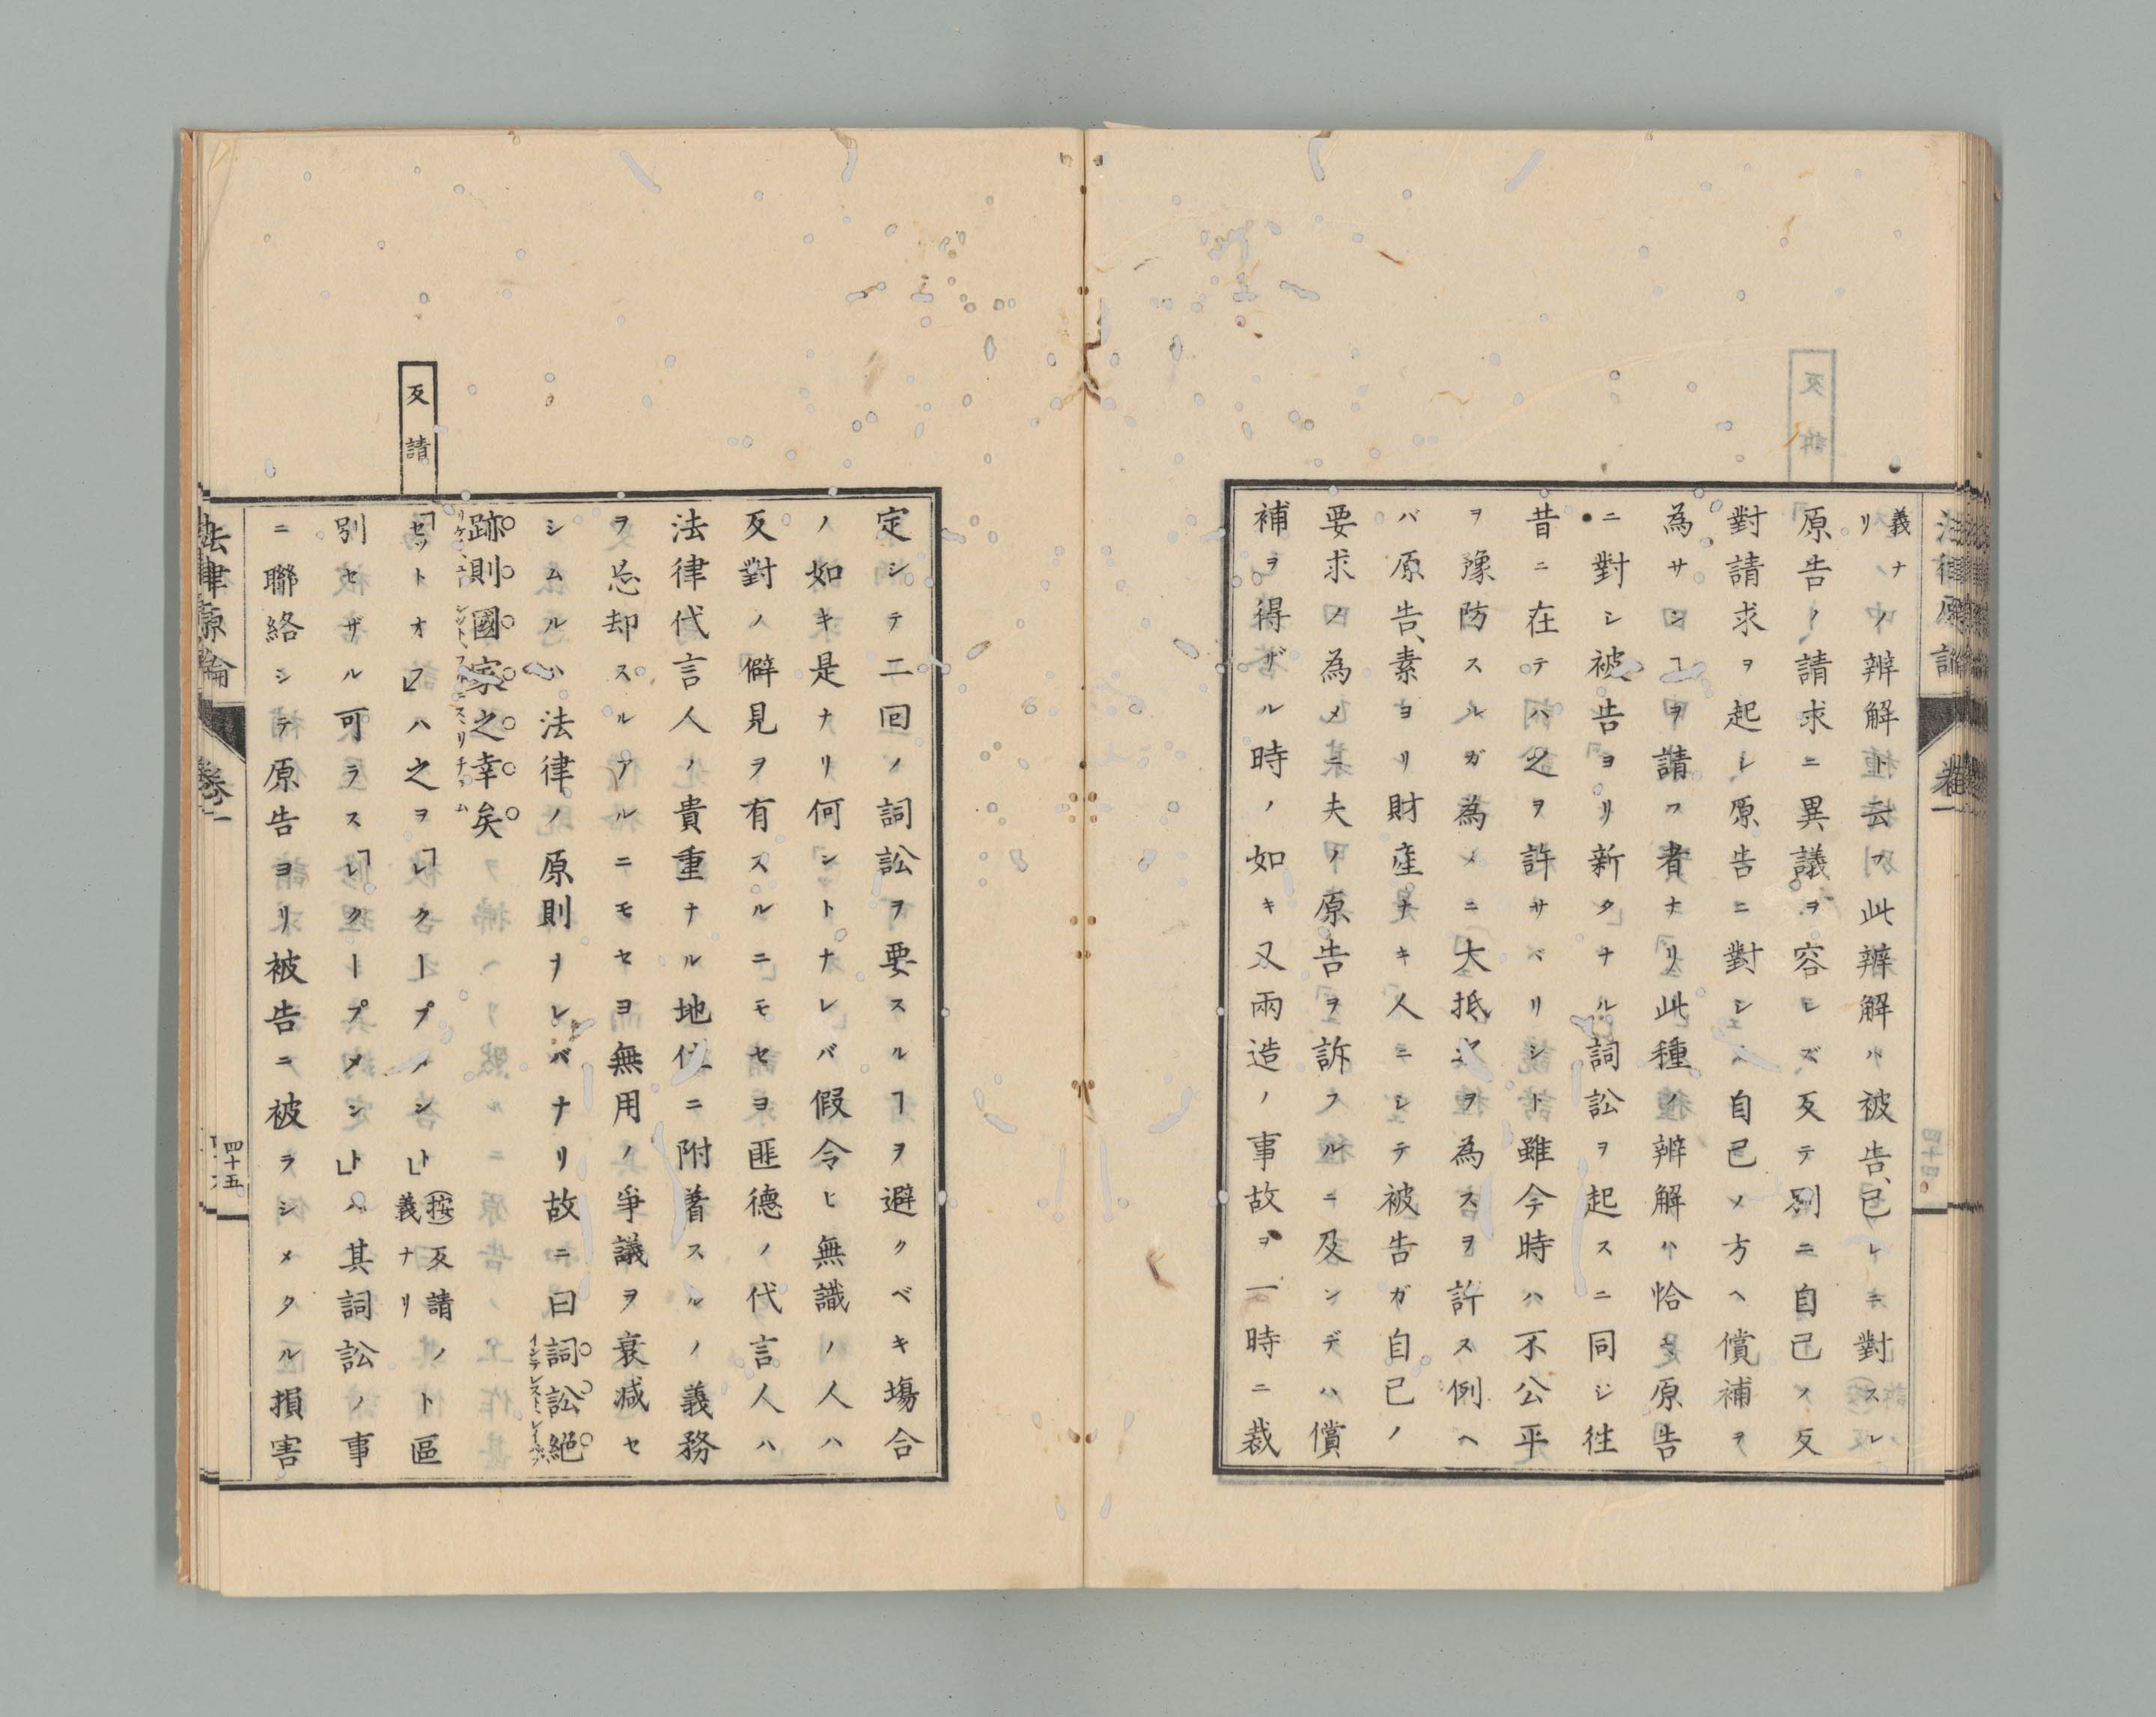 義ナリノ辨解ト云フ此辨解ハ被告、己レニ對スル
原告ノ請求ニ異議ヲ容レズ反テ別ニ自己ノ反
對請求ヲ起シ原告ニ對シ自己ノ方ヘ償補ヲ
為サンヿヲ請フ者ナリ此種ノ辨解ハ恰モ原告
ニ對シ被告ヨリ新タナル詞訟ヲ起スニ同ジ徃
昔ニ在テハ之ヲ許サベリシト雖今時ハ不公平
ヲ豫防スルガ為メニ大抵之ヲ為スヲ許ス例ヘ
バ原告、素ヨリ財産ナキ人ニシテ被告ガ自己ノ
要求ノ為メ夫ノ原告ヲ訴フルニ及ンデハ償
補ヲ得ザル時ノ如キ又兩造ノ事故ヲ一時ニ裁
定シテ二回ノ詞訟ヲ要スルヿヲ避クベキ塲合
ノ如キ是ナリ何ントナレバ假令ヒ無識ノ人ハ
反對ノ僻見ヲ有スルニモセヨ匪德ノ代言人ハ
法律代言人ノ貴重ナル地位ニ附着スルノ義務
ヲ忘却スルアルニモセヨ無用ノ爭議ヲ衰減セ
シムルハ法律ノ原則ナレバナリ故ニ曰詞訟絕
跡則國家之幸矣
反請
「セットオフ」ハ之ヲ「レクープメント」按反請ノ義ナリト區
別セザル可ラス「レクープメント」ハ其詞訟ノ事
ニ聯絡シテ原告ヨリ被告ニ被ラシメタル損害
法律原論
卷一
四十五